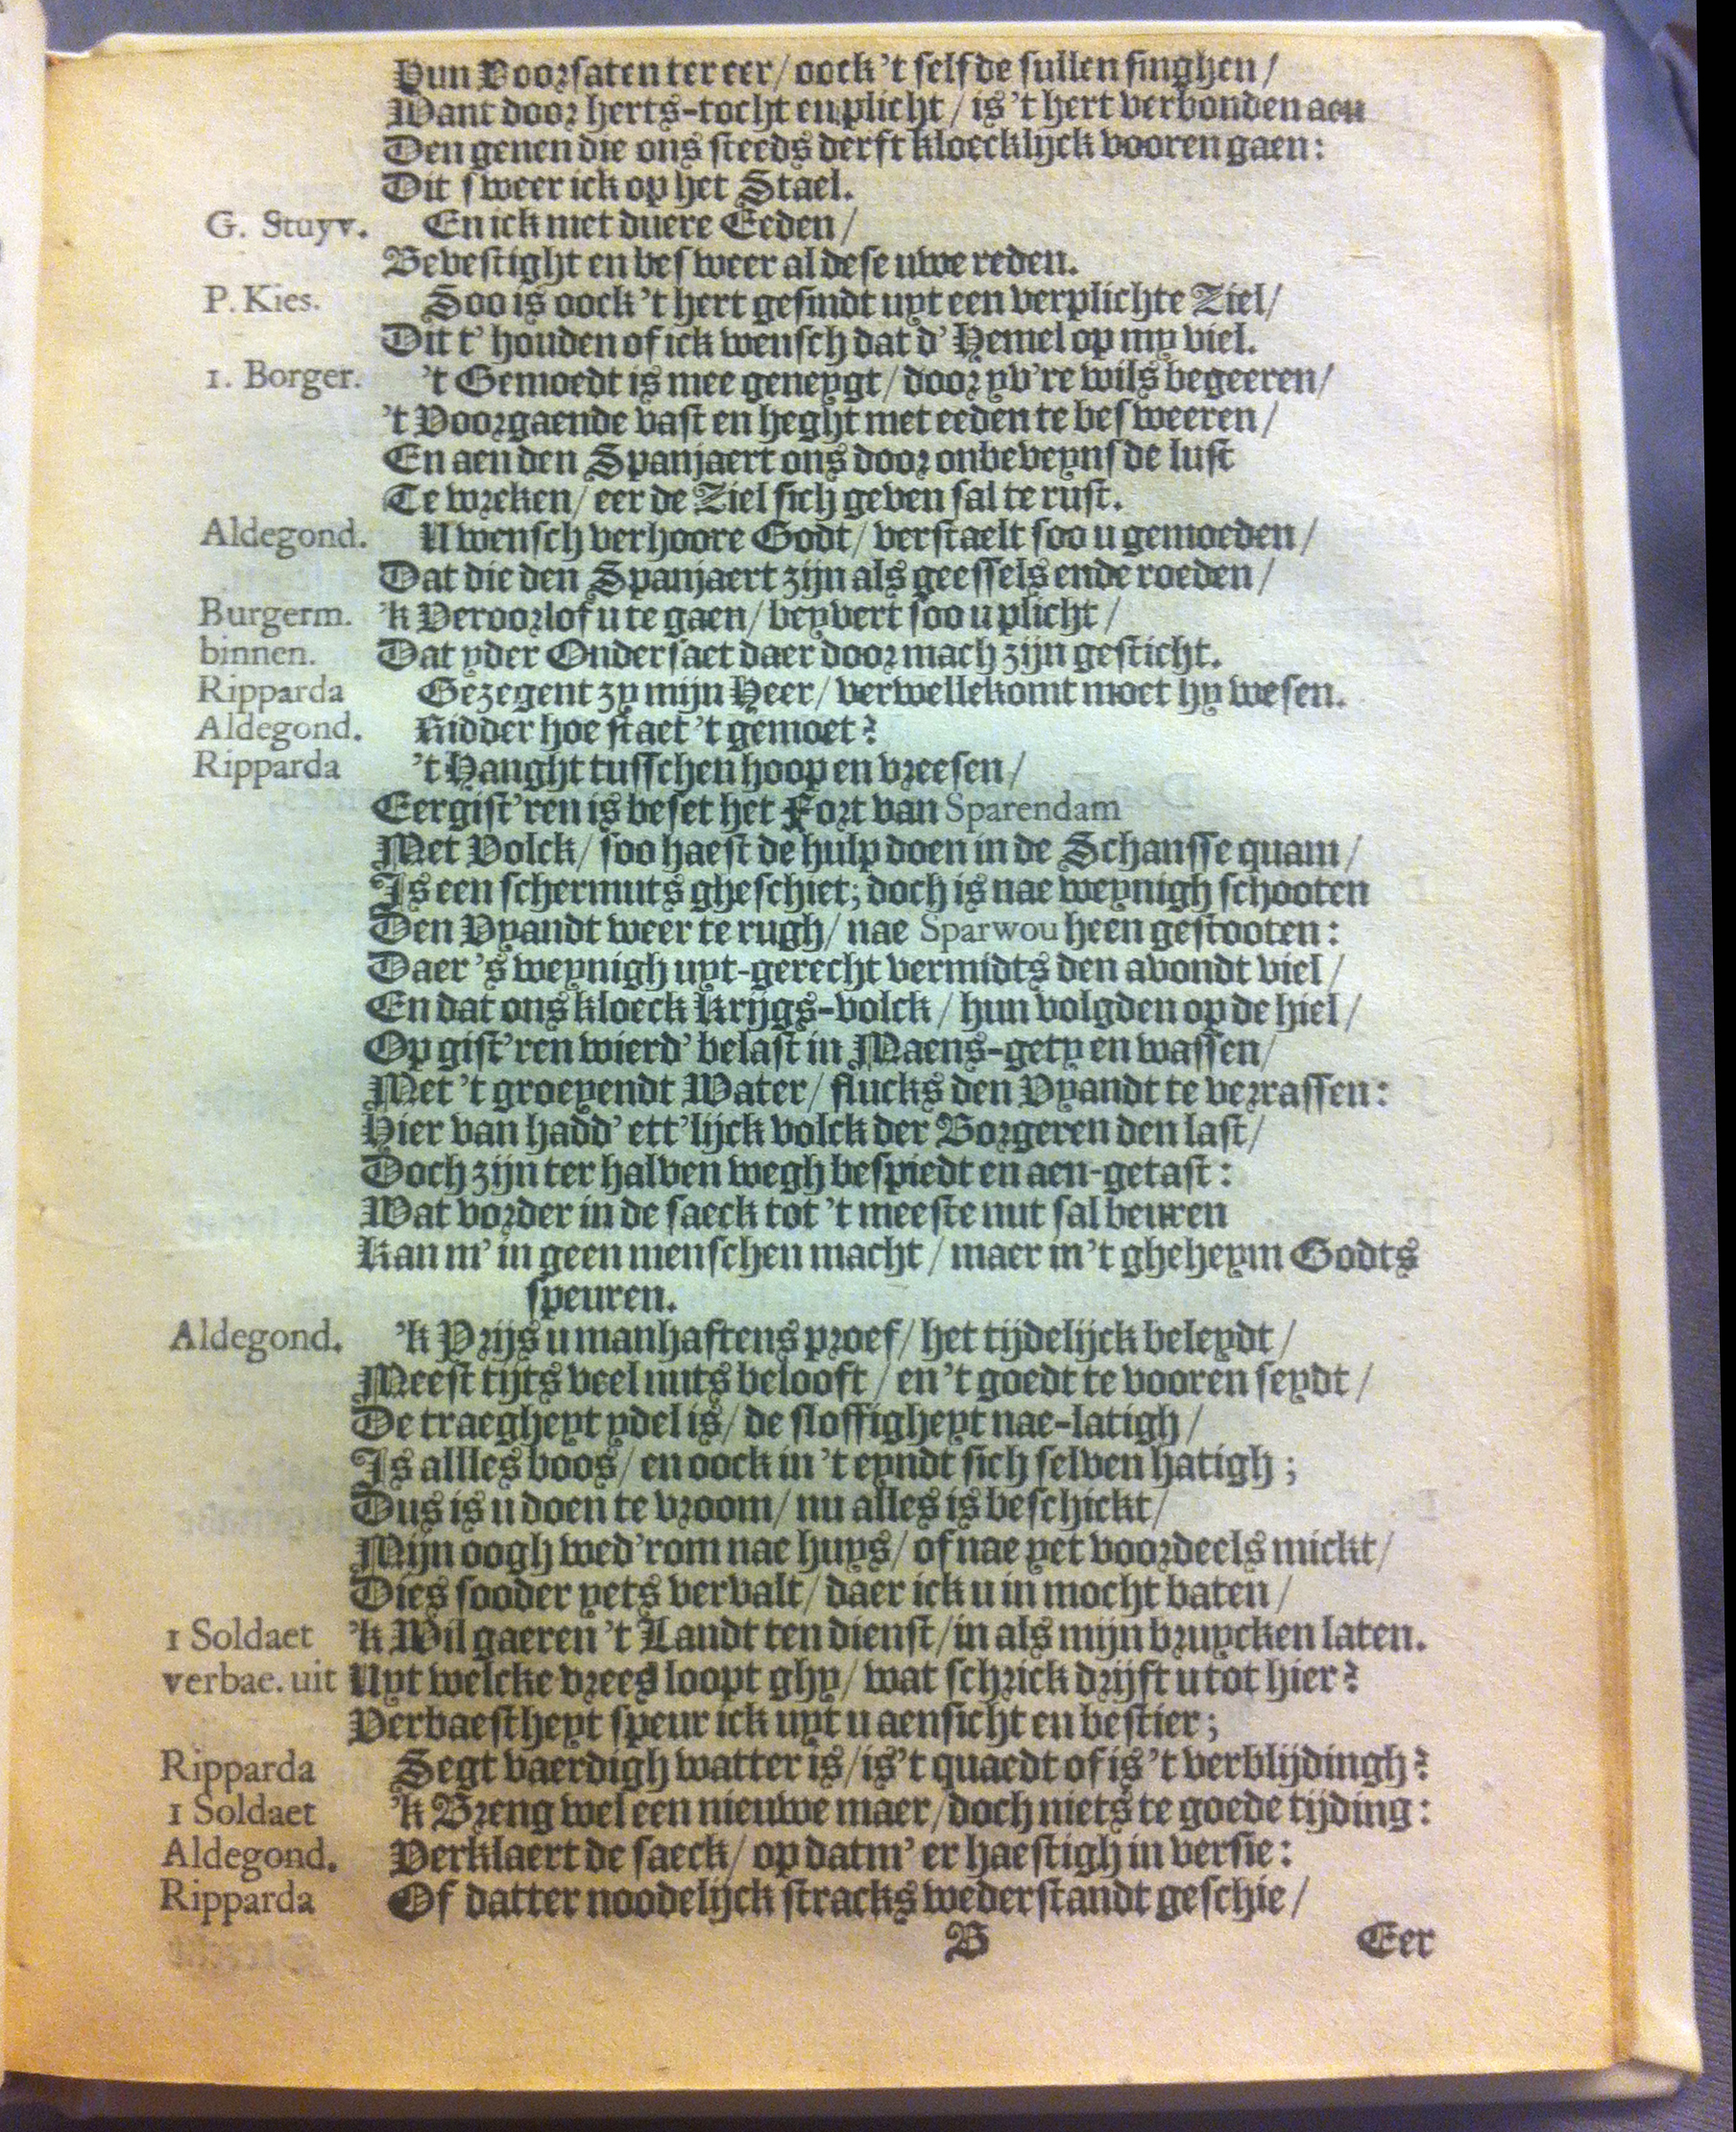 Hun Voorsaten ter eer/ oock 't selfde sullen singhen/
Want door herts-tocht en plicht/ is 't hert verbonden aen
Den genen die ons steeds derft kloecklijck vooren gaen:
Dit sweer ick op het Stael.
G. Stuyv. En ick met duere Eeden/
Bevestight en besweer al dese uwe reden.
P. Kies. Soo is oock 't hert gesindt uyt een verplichte Ziel/
Dit t' houden of ick wensch dat d' Hemel op my viel.
1. Borger. 't Gemoedt is mee geneygt/ door yv're wils begeeren/
't Voorgaende vast en heght met eeden te besweeren/
En aen den Spanjaert ons door onbeveynsde lust
Te wreken/ eer de Ziel sich geven sal te rust.
Aldegond. U wensch verhoore Godt/ verstaelt soo u gemoeden/
Dat die den Spanjaert zijn als geessels ende roeden/
Burgerm. 'k Veroorlof u te gaen/ beyvert soo u plicht/
binnen. Dat yder Ondersaet daer door mach zijn gesticht.
Ripparda Gezegent zy mijn Heer/ verwellekomt moet hy wesen.
Aldegond. Ridder hoe staet 't gemoet?
Ripparda 't Hanght tusschen hoop en vreesen/
Eergist'ren is beset het Fort van Sparendam
Met Volck/ soo haest de hulp doen in de Schansse quam/
Is een schermuts gheschiet; doch is nae weynigh schooten
Den Vyandt weer te rugh/ nae Sparwou heen gestooten:
Daer 's weynigh uyt-gerecht vermidts den avondt viel/
En dat ons kloeck Krijgs-volck/ hun volgden op de hiel/
Op gist'ren wierd' belast in Maens-gety en wassen/
Met 't groeyendt Water/ flucks den Vyandt te verrassen:
Hier van hadd' ett'lijck volck der Borgeren den last/
Doch zijn ter halven wegh bespiedt en aen-getast:
Wat vorder in de saeck tot 't meeste nut sal beuren
Kan m' in geen menschen macht/ maer in 't gheheym Godts
speuren.
Aldegond. 'k Prijs u manhaftens proef/ het tijdelijck beleydt/
Meest tijts veel nuts belooft/ en 't goedt te vooren seydt/
De traegheyt ydel is/ de sloffigheyt nae-latigh/
Is allles boos/ en oock in 't eyndt sich selven hatigh;
Dus is u doen te vroom/ nu alles is beschickt/
Mijn oogh wed'rom nae huys/ of nae yet voordeels mickt/
Dies sooder yets vervalt/ daer ick u in mocht baten/
1 Soldaet 'k Wil gaeren 't Landt ten dienst/ in als mijn bruycken laten.
verbae. uit Uyt welcke vrees loopt ghy/ wat schrick drijft u tot hier?
Verbaestheyt speur ick uyt u aensicht en bestier;
Ripparda Segt vaerdigh watter is/ is 't quaedt of is 't verblijdingh?
1 Soldaet 'k Breng wel een nieuwe maer/ doch niets te goede tijding:
Aldegond. Verklaert de saeck/ op datm' er haestigh in versie:
Ripparda Of datter noodelijck stracks wederstandt geschie/
B Eer